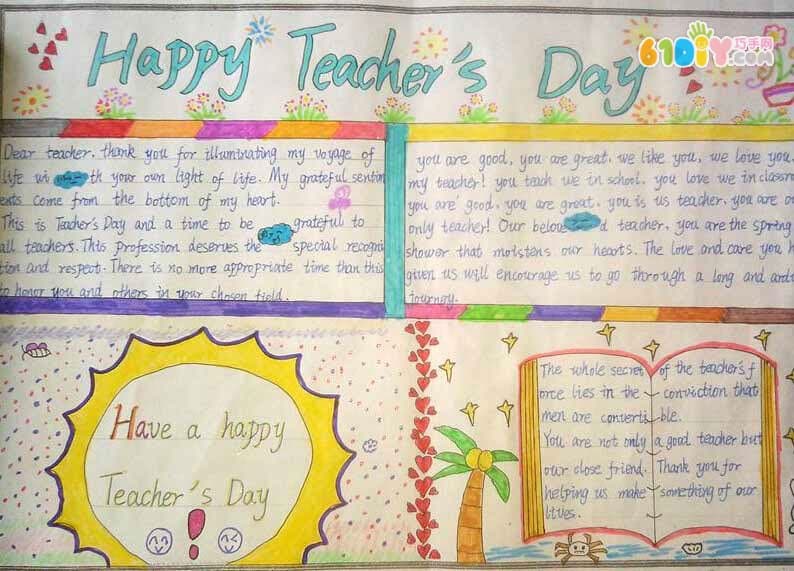 Happy Teacher's Day
61DIY巧手网
.com
Dear teacher. thank you for illuminating my voyage of
life wi th your own light of life. My grateful sentim
ents come from the bottom of my heart.
This is Teacher's Day and a time to be grateful to
all teachers. This profession deserves the special recogni
tion and respect. There is no more appropriate time than this
to honor you and others in your chosen field.
you are good, you are great, we like you, we love you.
my teacher! you teach we in school, you love we in classro
you are good, you are great, you is us teacher, you are o
only teacher! Our belou d teacher, you are the spring
shower that moistens our hearts. The love and care you h
given us will encourage us to go through a long and ardu
journey.
Have a happy
Teacher's Day
!
The whole secret of the teacher's f
orce lies in the conviction that
men are converti ble.
You are not only a good teacher but
our close friend. Thank you for
helping us make something of our
lives.